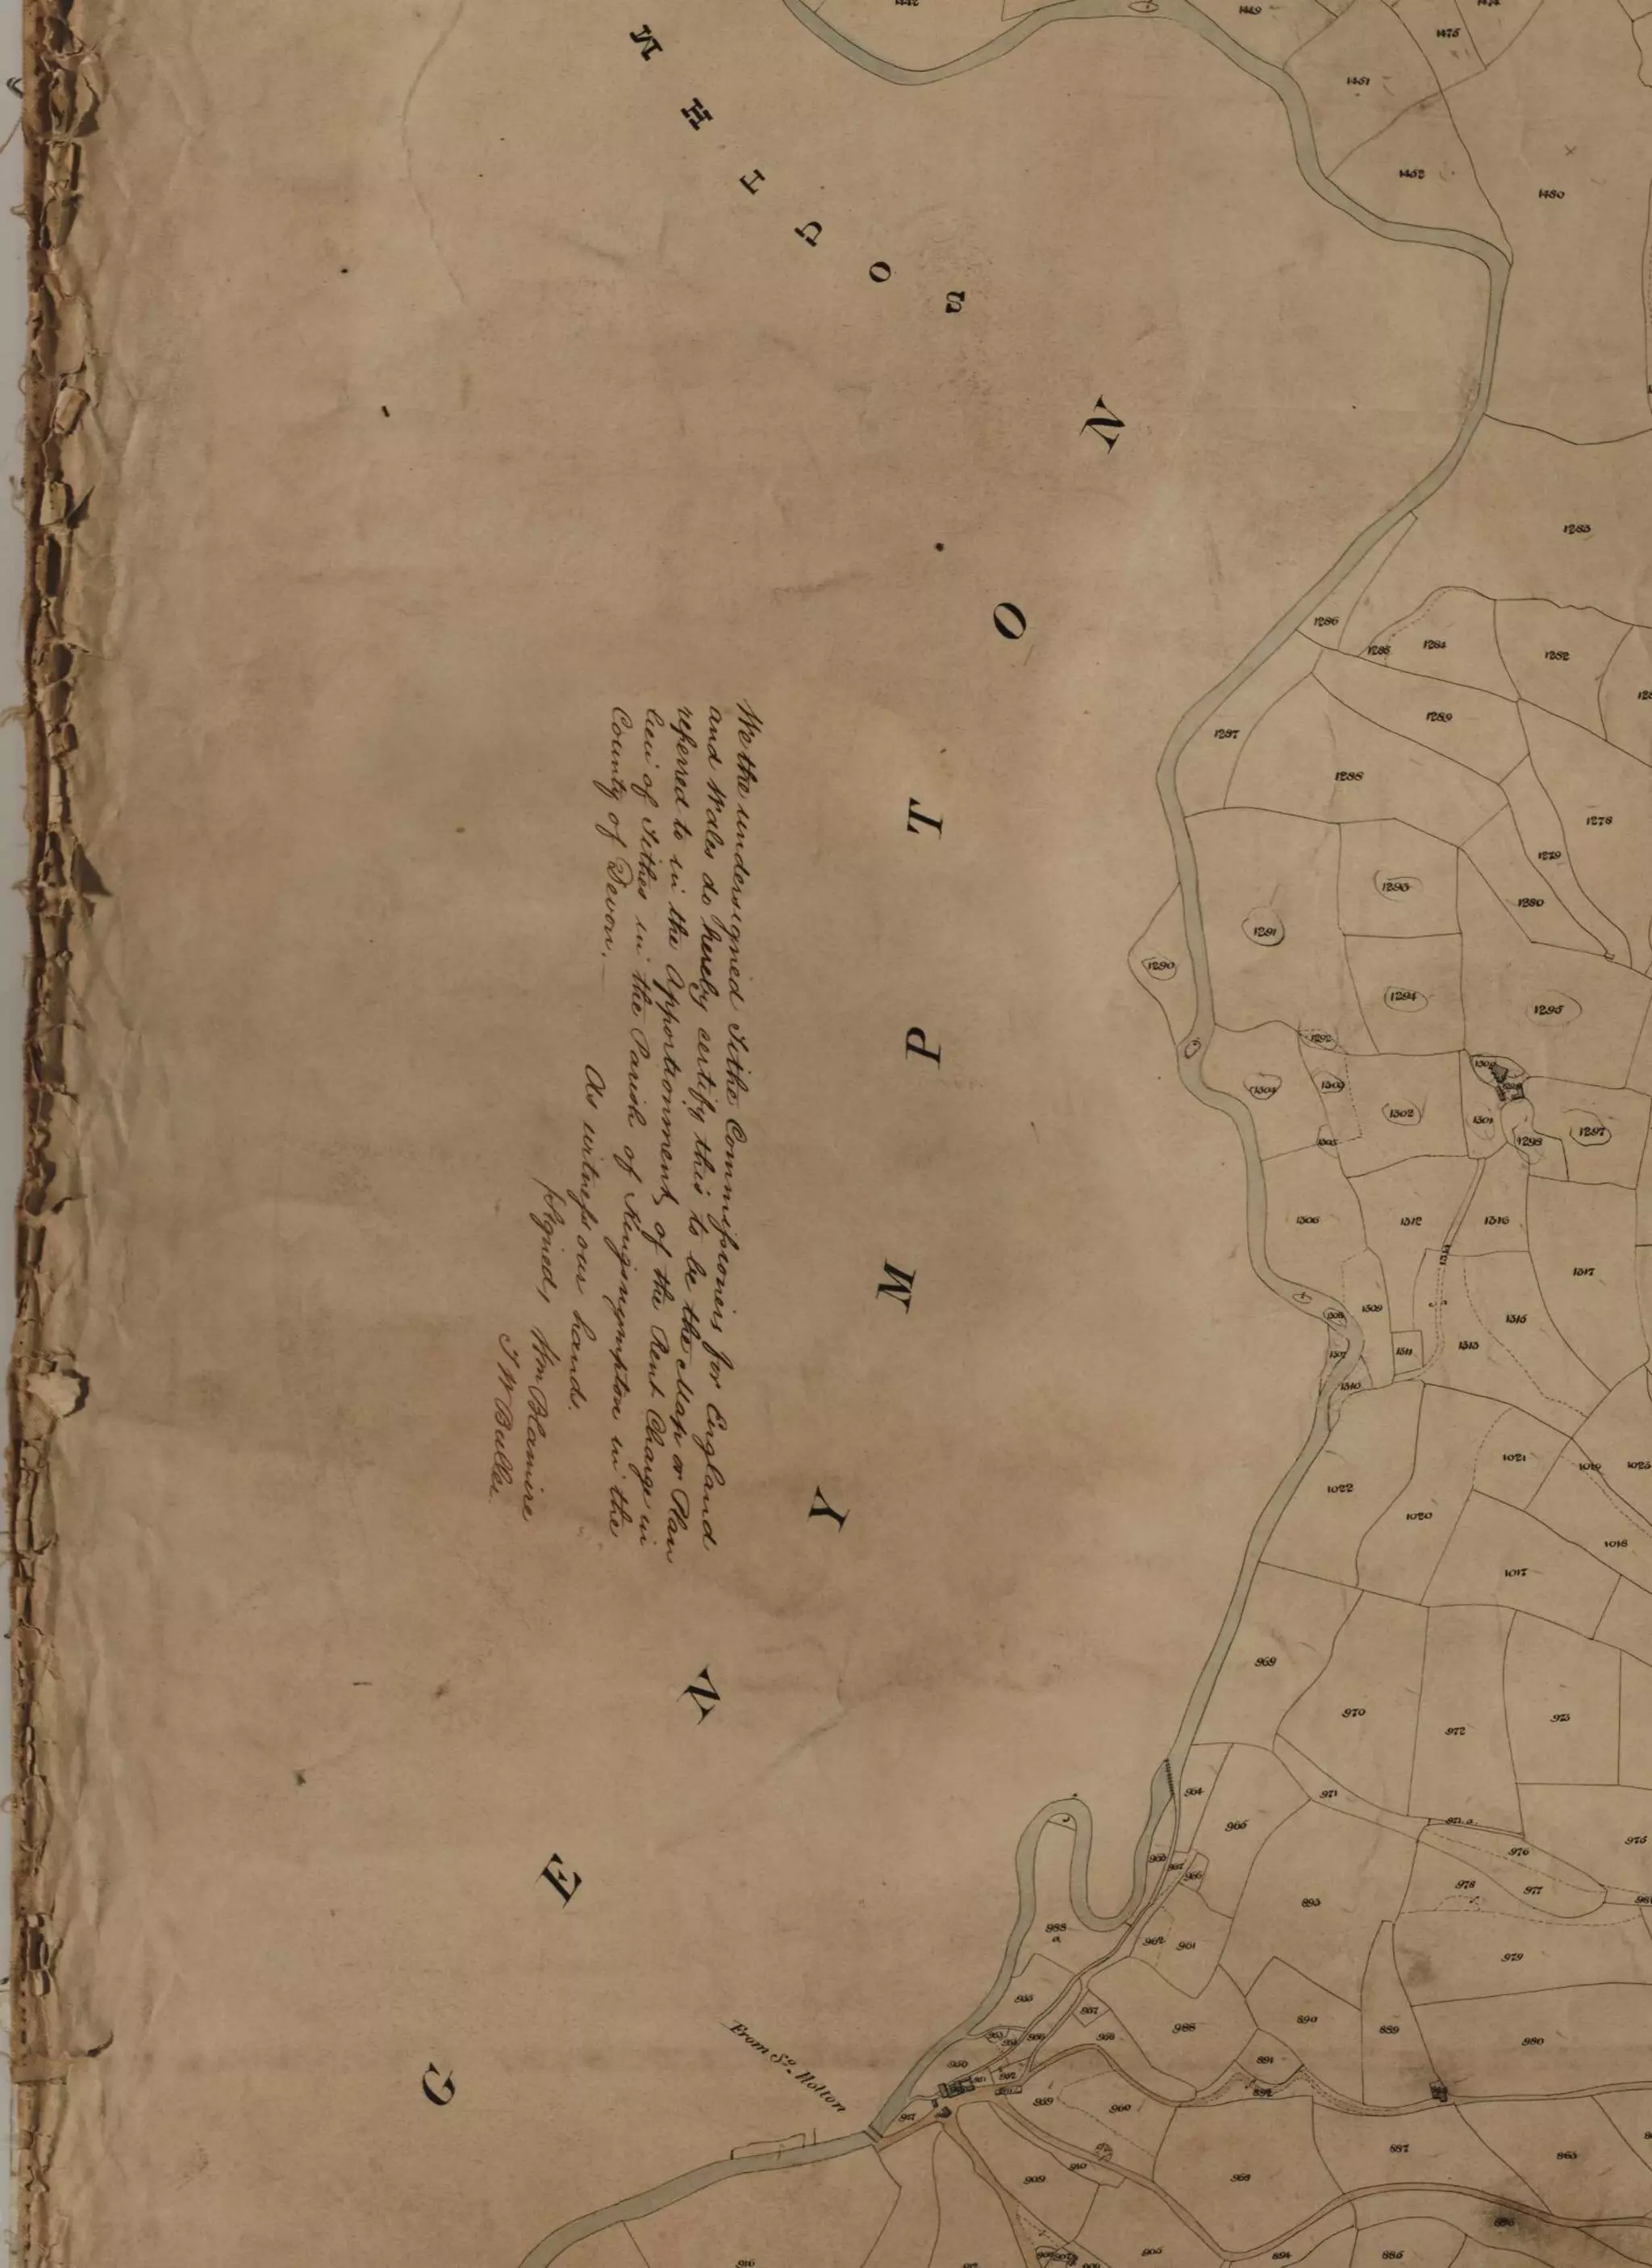 We the undersigned Tithe Commissioners for England
and Wales do hereby certify this to be the Map or Plan
referred to in the Apportionment of the Rent Charge in
lieu of Tithes in the Parish of Kingsnympton in the
County of Devon.
As witness our hands.
Signed, Wm Blamire
T W Buller
G
E
N
Y
M
P
T
O
N
M
H
T
U
O
From So. Molton
1449
1475
1451
1452
1480
1283
1286
1285
1284
1282
1289
1287
1288
1278
1279
1280
1293
1291
1290
1294
1295
1292
1304
1303
1302
1301
1298
1297
1305
1306
1312
1316
1317
1309
1315
1313
1311
1307
1310
1021
1019
1023
1022
1020
1018
1017
969
970
972
973
964
971
965
976
975
978
977
893
979
962
961
955
957
958
988
890
889
980
891
892
950
959
960
947
887
863
909
910
968
905
894
885
916